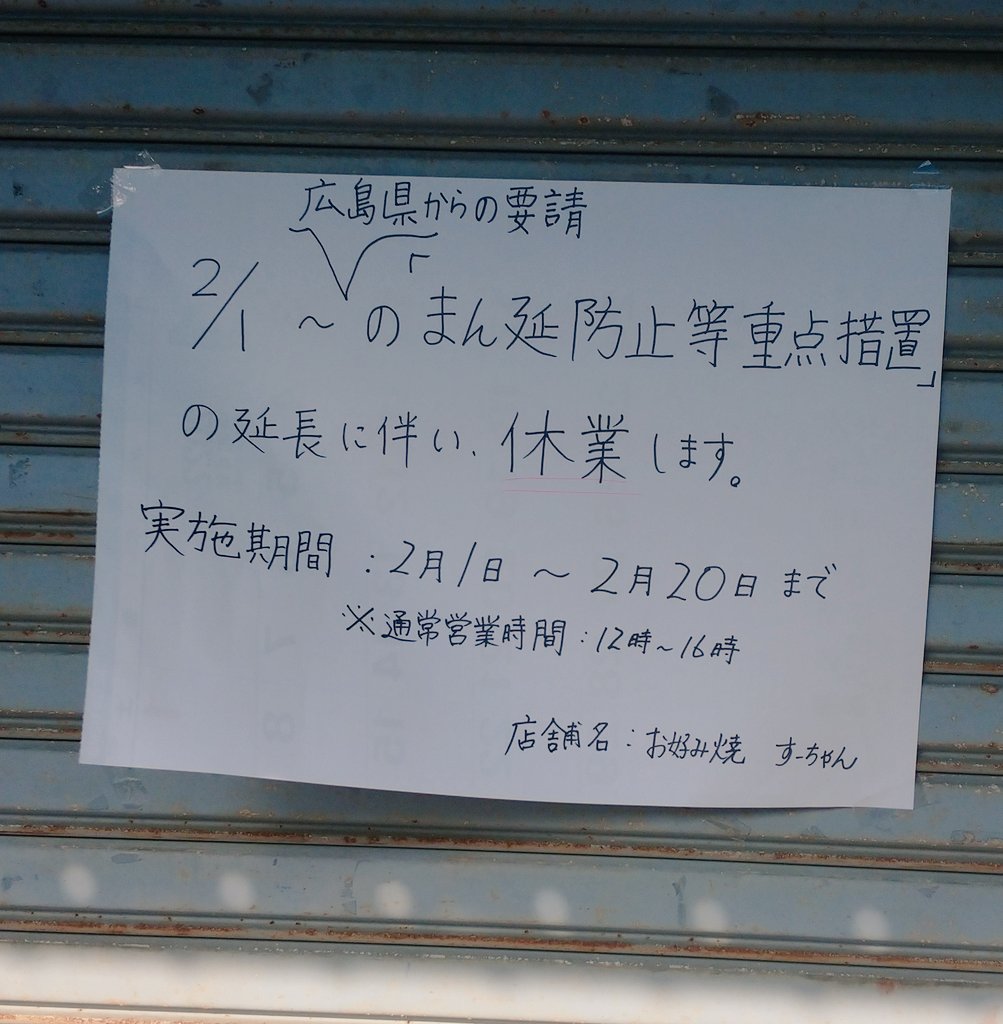 広島県からの要請
2/1 ~ の「まん延防止等重点措置」
の延長に伴い、休業します。
実施期間：2月1日 ~ 2月20日 まで
※通常営業時間：12時~16時
店舗名：お好み焼 すーちゃん